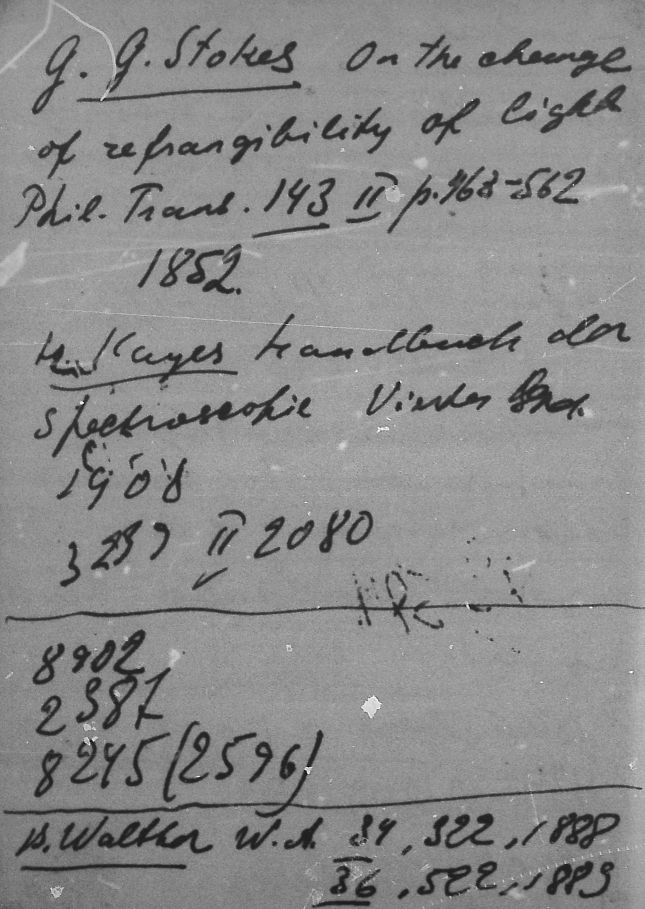 G. G. Stokes On the change
of refrangibility of light
Phil. Trans. 143 II p. 463-562
1852.
H. Kayser Handbuch der
Spectroscopie Vierter Band.
1908
3239 II 2080
8902
2387
8245 (2596)
B. Walther W. A. 34, 322, 1888
36, 522, 1889